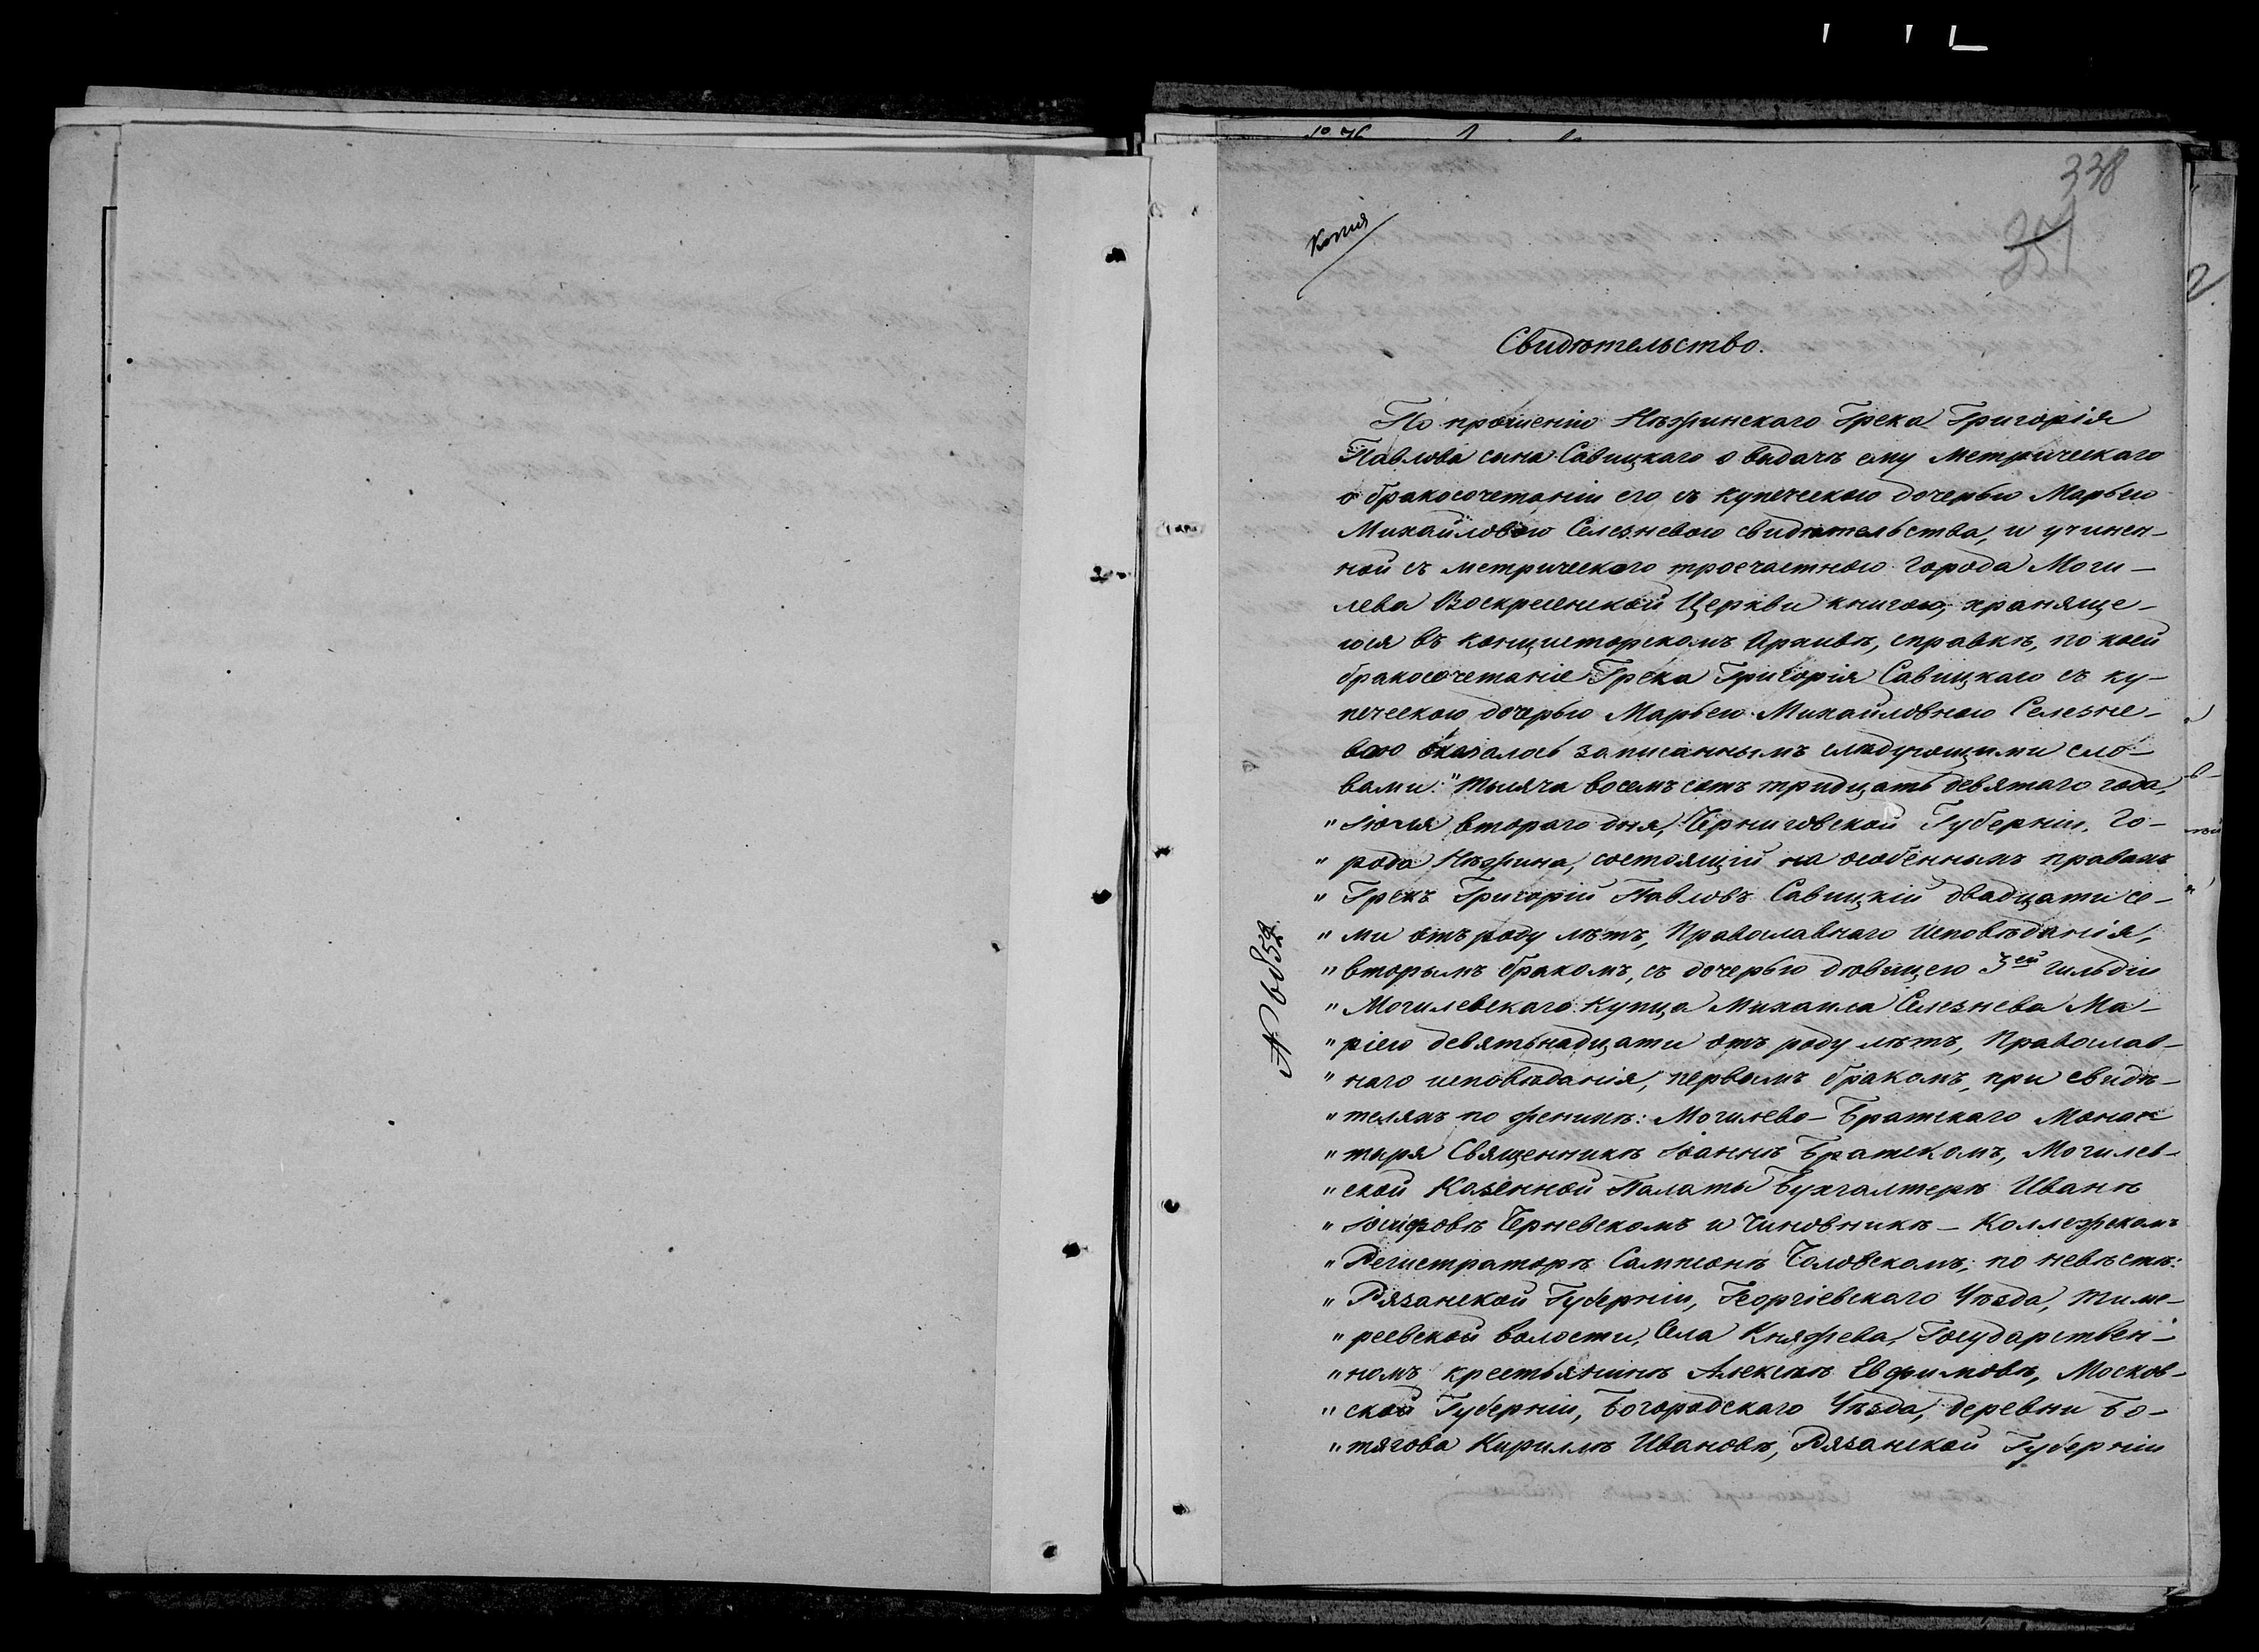 338
351
Копія
Свидѣтельство.
По прошенію Нѣжинскаго Грека Григорія
Павлова сына Савицкаго о выдачѣ ему метрическаго
о бракосочетаніи его съ купеческою дочерью Марьею
Михайловою Селезневою свидѣтельства, и учинен-
ной съ метрическаго троечастною города Моги-
лева Воскресенской Церкви книгою, храняще-
юся въ консисторскомъ Архивѣ, справкѣ, по коей
бракосочетаніе Грека Григорія Савицкаго съ ку-
печескою дочерью Марьею Михайловною Селезне-
вою оказалось записаннымъ слѣдующими сло-
вами: "Тысяча восемъ сотъ тридцать девятаго года,
"Іюля втораго дня, Черниговской Губерніи, Го-
"рода Нѣжина, состоящій на особенныхъ правахъ
"Грекъ Григорій Павловъ Савицкій двадцати се-
"ми отъ роду лѣтъ, Православнаго Исповѣданія,
"вторымъ бракомъ, съ дочерью дѣвицею 3ей гильдіи
"Могилевскаго купца Михаила Селезнева Ма-
"ріею девятьнадцати отъ роду лѣтъ, Православ-
"наго исповѣданія, первымъ бракомъ, при свидѣ-
"теляхъ по женихѣ: Могилево-Братскаго Монас
"тыря Священникѣ Іоаннѣ Братскомъ, Могилев-
"ской Казенной Палаты Бухгалтерѣ Иванѣ
"Іосифовѣ Черневскомъ и Чиновникѣ - Коллежскомъ
"Регистраторѣ Сампсонѣ Чоловскомъ; по невѣстѣ:
"Рязанской Губерніи, Георгіевскаго Уѣзда, Тиме-
"реевской волости, Села Княжева, Государствен-
"номъ крестьянинѣ Алексѣѣ Евфимовѣ, Москов-
"ской Губерніи, Богородскаго Уѣзда, деревни Бо-
"тягова Кириллѣ Ивановѣ, Рязанской Губерніи
№ 6852